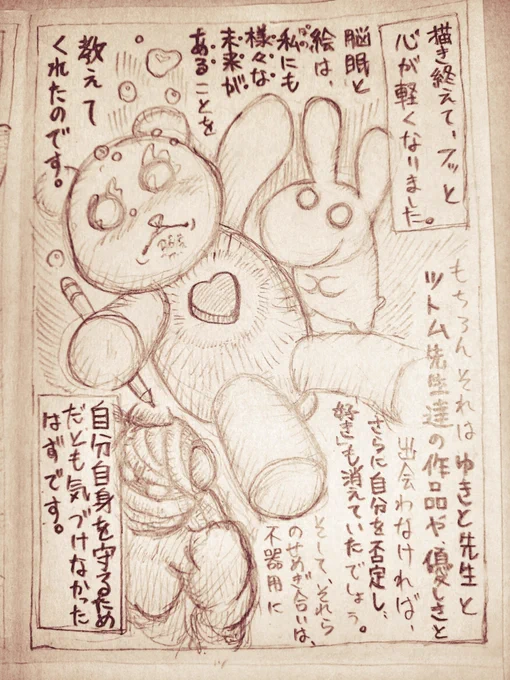 描き終えて、フッと
心が軽くなりました。
脳眠と
絵は、
私にも
様々な
未来が
あることを
教えて
くれたのです。
もちろんそれはゆきと先生と
ツトム先生達の作品や、優しさと
出会わなければ、
さらに自分を否定し、
"好き"も消えていたでしょう。
そして、それら
のせめぎ合いは、
不器用に
自分自身を守るため
だとも気づけなかった
はずです。